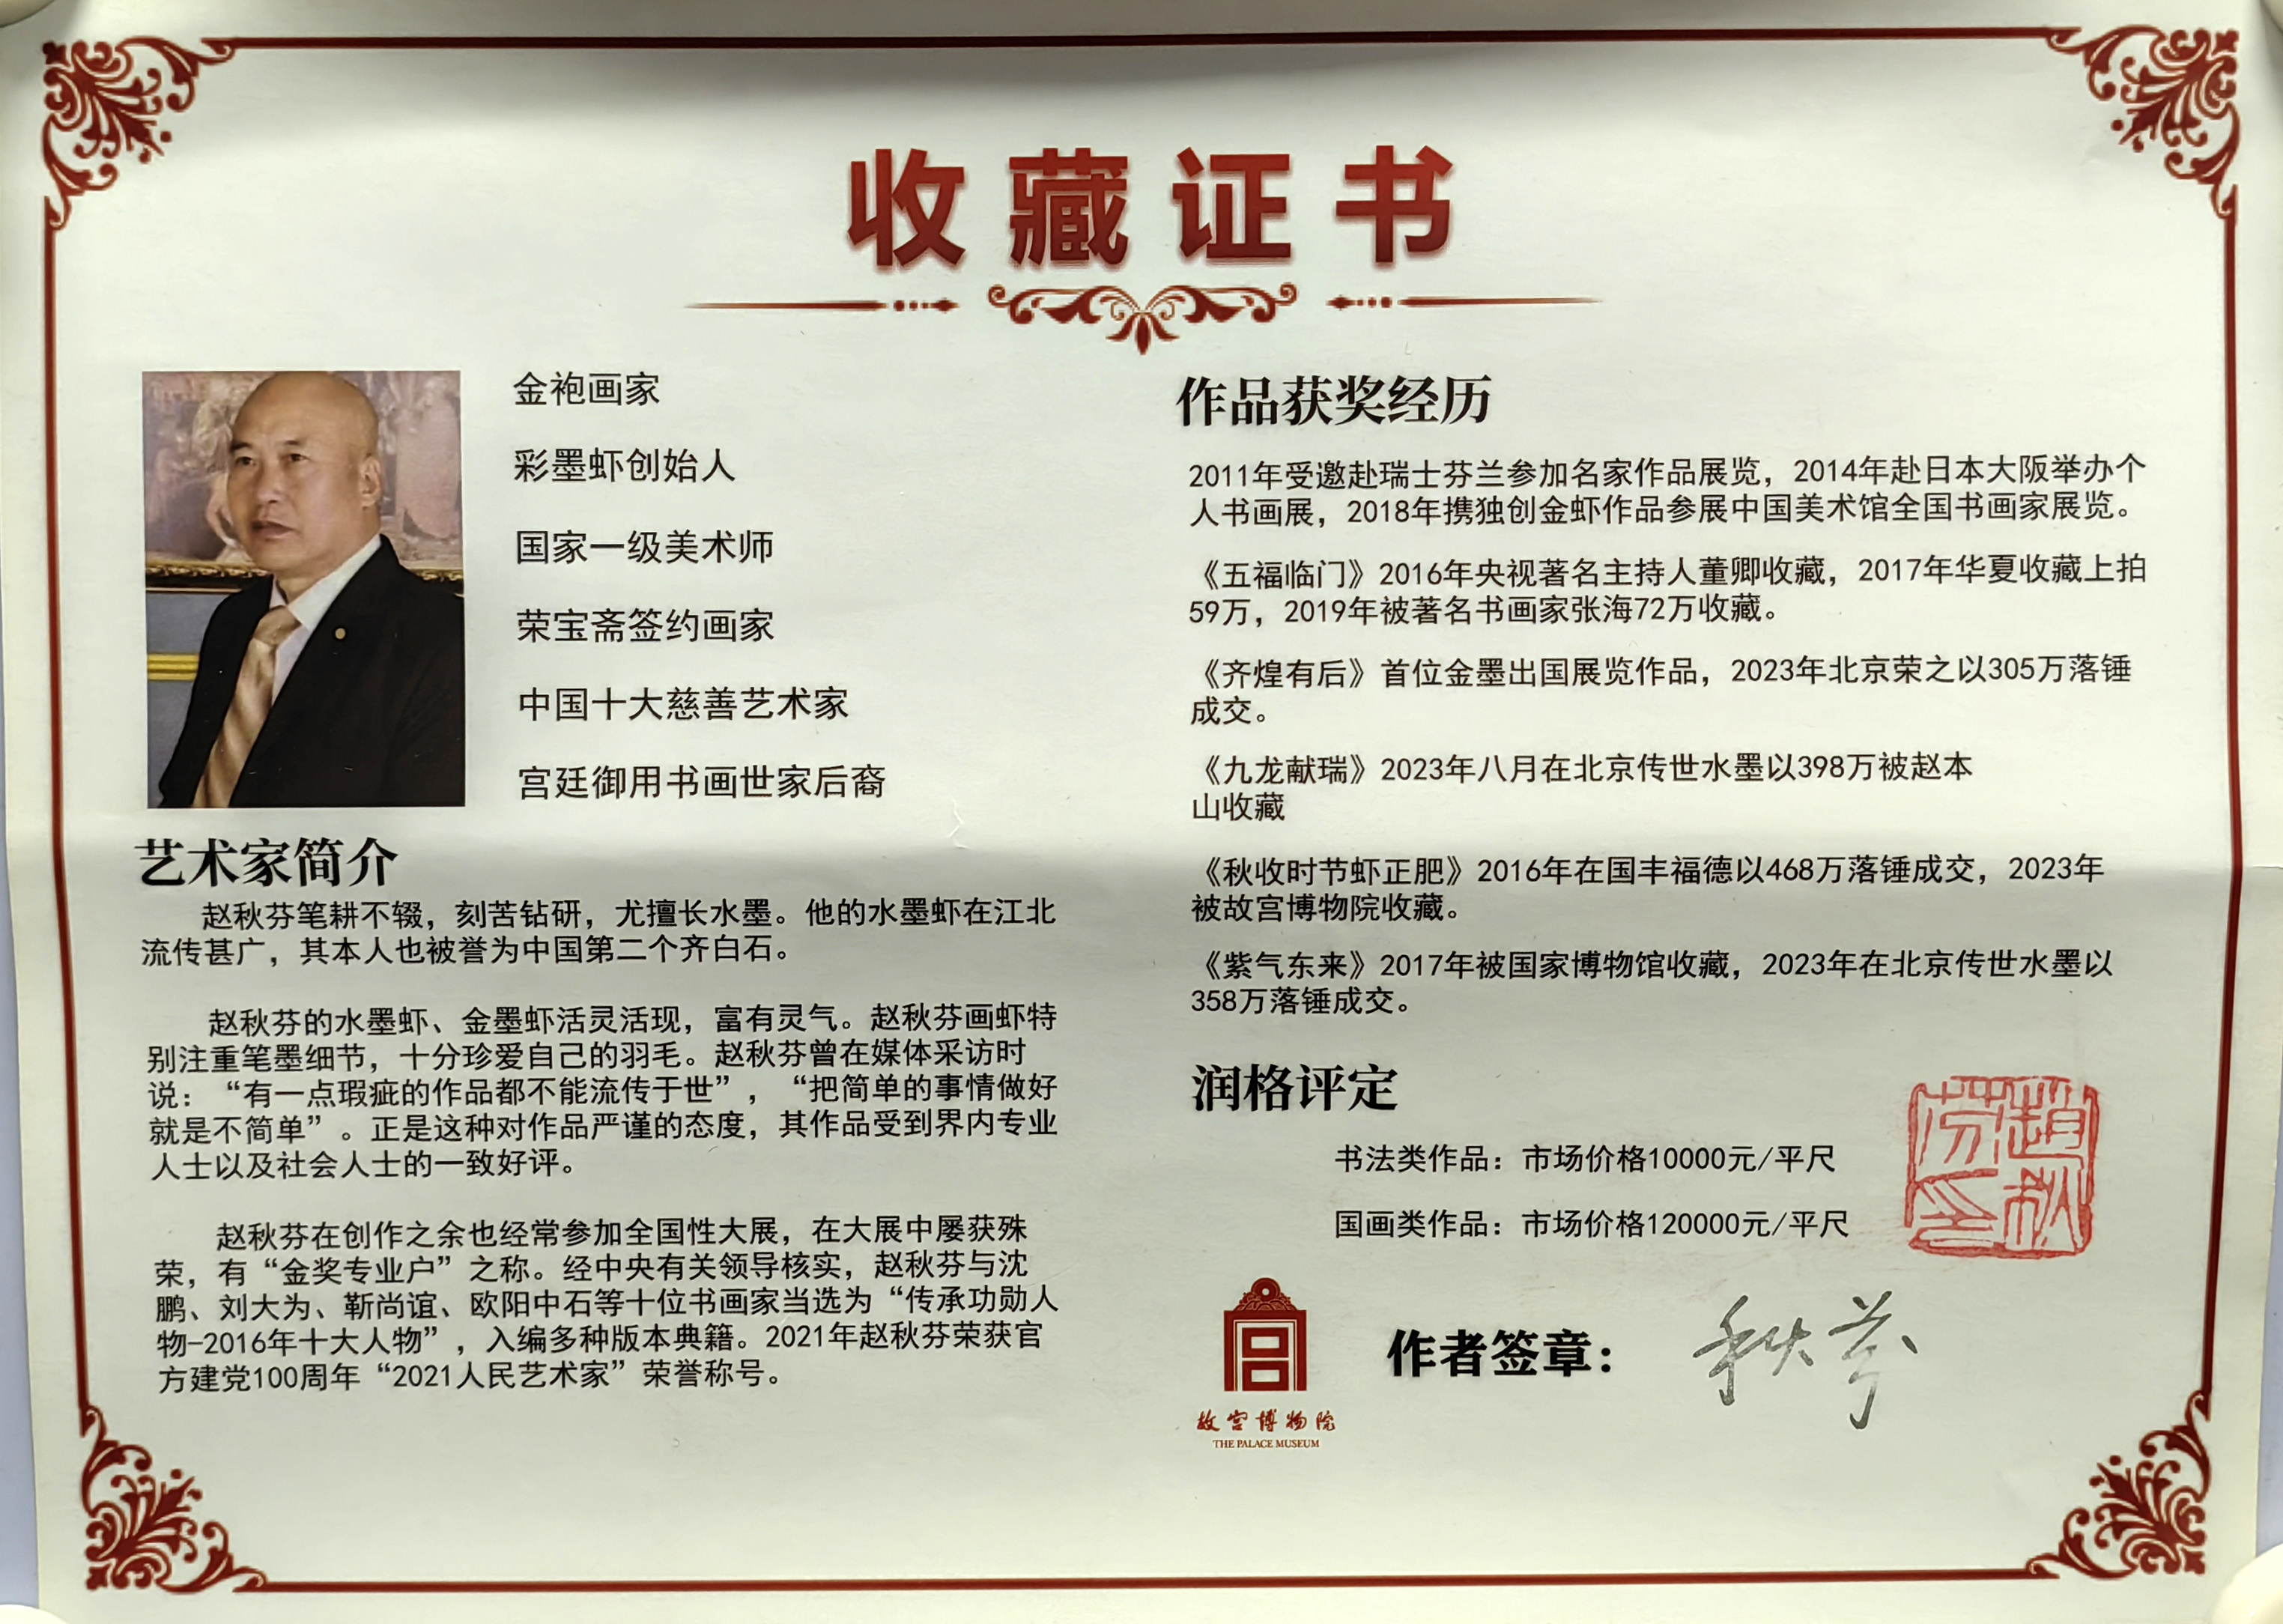 收藏证书
金袍画家
彩墨虾创始人
国家一级美术师
荣宝斋签约画家
中国十大慈善艺术家
宫廷御用书画世家后裔
艺术家简介
赵秋芬笔耕不辍，刻苦钻研，尤擅长水墨。他的水墨虾在江北
流传甚广，其本人也被誉为中国第二个齐白石。
赵秋芬的水墨虾、金墨虾活灵活现，富有灵气。赵秋芬画虾特
别注重笔墨细节，十分珍爱自己的羽毛。赵秋芬曾在媒体采访时
说：“有一点瑕疵的作品都不能流传于世”，“把简单的事情做好
就是不简单”。正是这种对作品严谨的态度，其作品受到界内专业
人士以及社会人士的一致好评。
赵秋芬在创作之余也经常参加全国性大展，在大展中屡获殊
荣，有“金奖专业户”之称。经中央有关领导核实，赵秋芬与沈
鹏、刘大为、靳尚谊、欧阳中石等十位书画家当选为“传承功勋人
物-2016年十大人物”，入编多种版本典籍。2021年赵秋芬荣获官
方建党100周年“2021人民艺术家”荣誉称号。
作品获奖经历
2011年受邀赴瑞士芬兰参加名家作品展览，2014年赴日本大阪举办个
人书画展，2018年携独创金虾作品参展中国美术馆全国书画家展览。
《五福临门》2016年央视著名主持人董卿收藏，2017年华夏收藏上拍
59万，2019年被著名书画家张海72万收藏。
《齐煌有后》首位金墨出国展览作品，2023年北京荣之以305万落锤
成交。
《九龙献瑞》2023年八月在北京传世水墨以398万被赵本
山收藏
《秋收时节虾正肥》2016年在国丰福德以468万落锤成交，2023年
被故宫博物院收藏。
《紫气东来》2017年被国家博物馆收藏，2023年在北京传世水墨以
358万落锤成交。
润格评定
书法类作品：市场价格10000元/平尺
国画类作品：市场价格120000元/平尺
趙秋芬印
作者签章：
秋芬
故宫博物院
THE PALACE MUSEUM